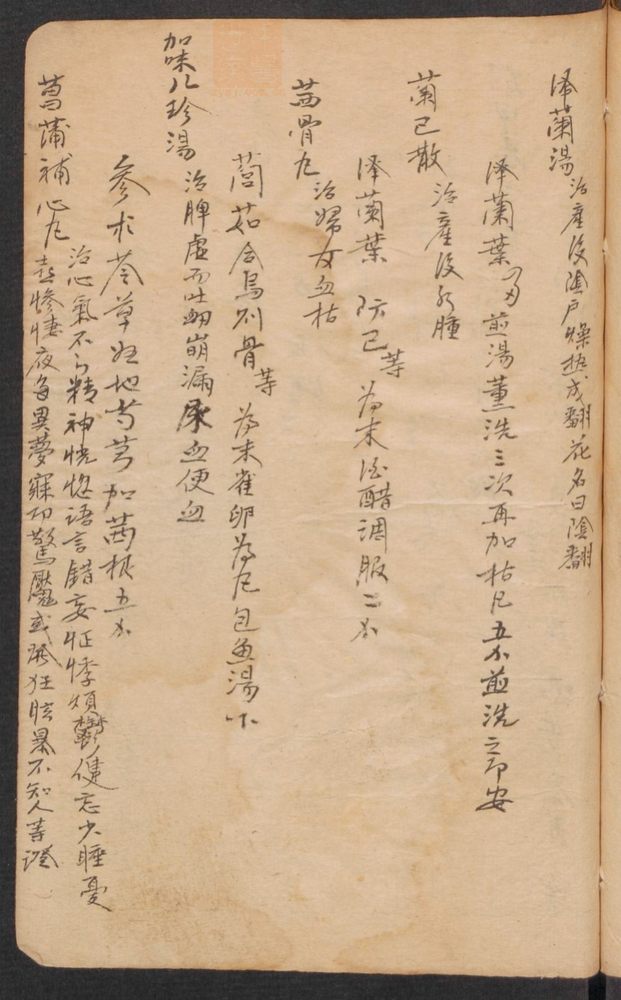 泽蘭湯 治產後陰户燥热成翻花名曰陰翻
泽蘭葉四刄煎湯薰洗三次再加枯凡五分煎洗之即安
蘭已散 治產後水腫
泽蘭葉 防已等 為末酒醋調服二分
茜骨凡 治婦女血枯
茴茹合烏则骨等 為末雀卵為凡包魚湯下
加味八珍湯 治脾虚而吐衂崩漏尿血便血
參朮苓草归地芍芎加茜根五分
菖蒲補心凡 治心氣不足精神恍惚語言錯妄怔悸煩鬱健忘少睡憂
喜慘悽夜多異夢寐即驚魘或發狂眩暴不知人等證